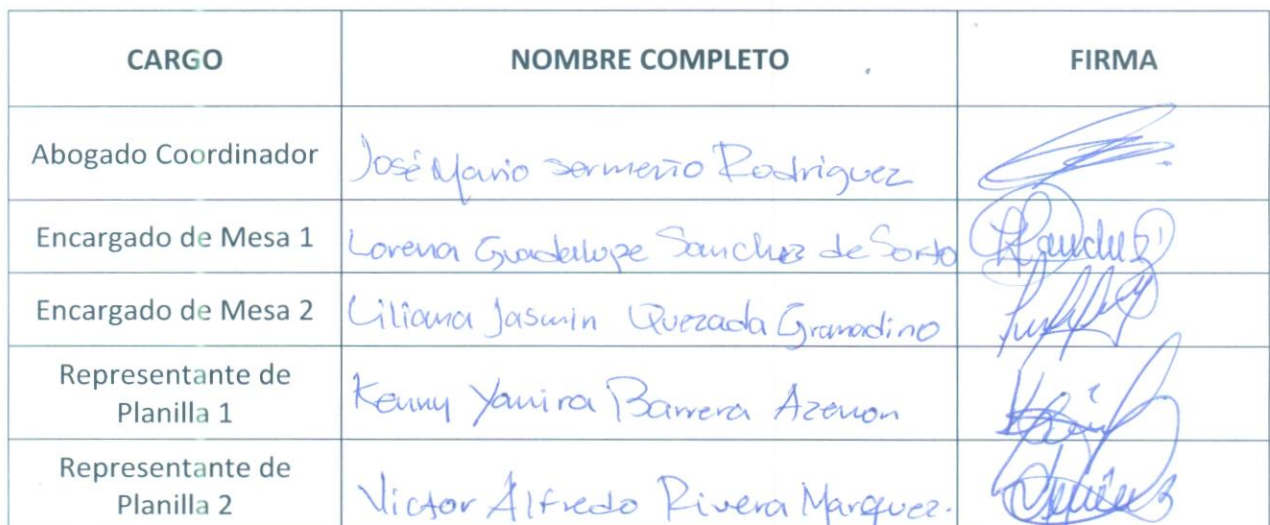 CARGO NOMBRE COMPLETO FIRMA
Abogado Coordinador José Mario Sermeño Rodriguez
Encargado de Mesa 1 Lorena Guadalupe Sanchez de Sorto
Encargado de Mesa 2 Liliana Jasmin Quezada Granadino
Representante de
Planilla 1 Kenny Yanira Barrera Azenon
Representante de
Planilla 2 Victor Alfredo Rivera Marquez.